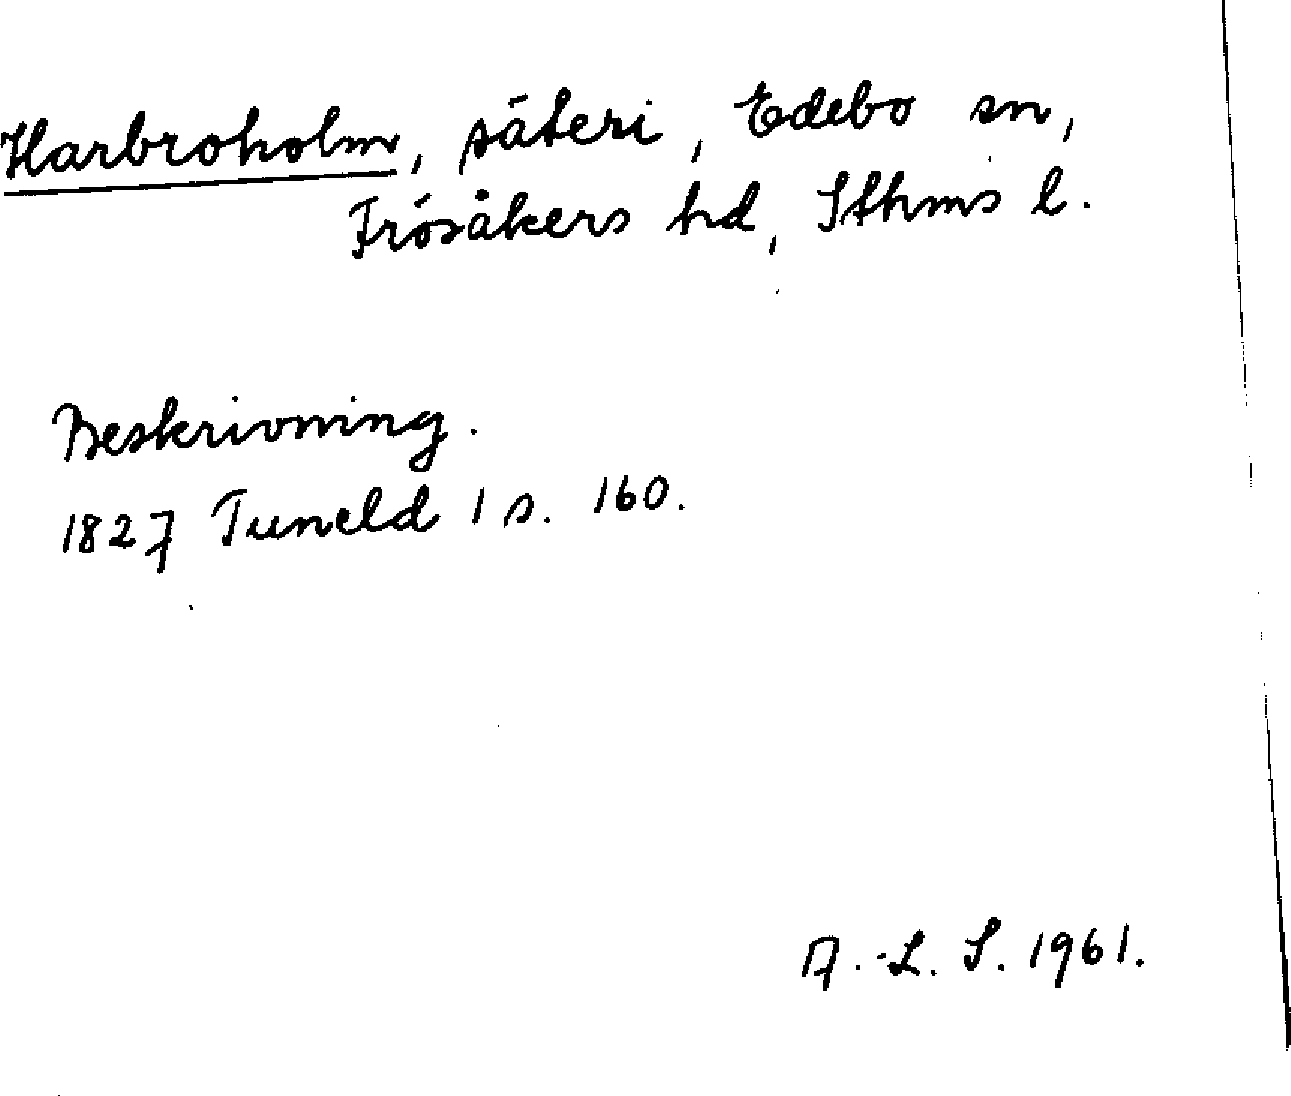 Harbroholm, säteri, Edebo sn,
Frösåkers hd, Sthms l.
Beskrivning.
1827 Tuneld 1 s. 160.
A.-L. S. 1961.